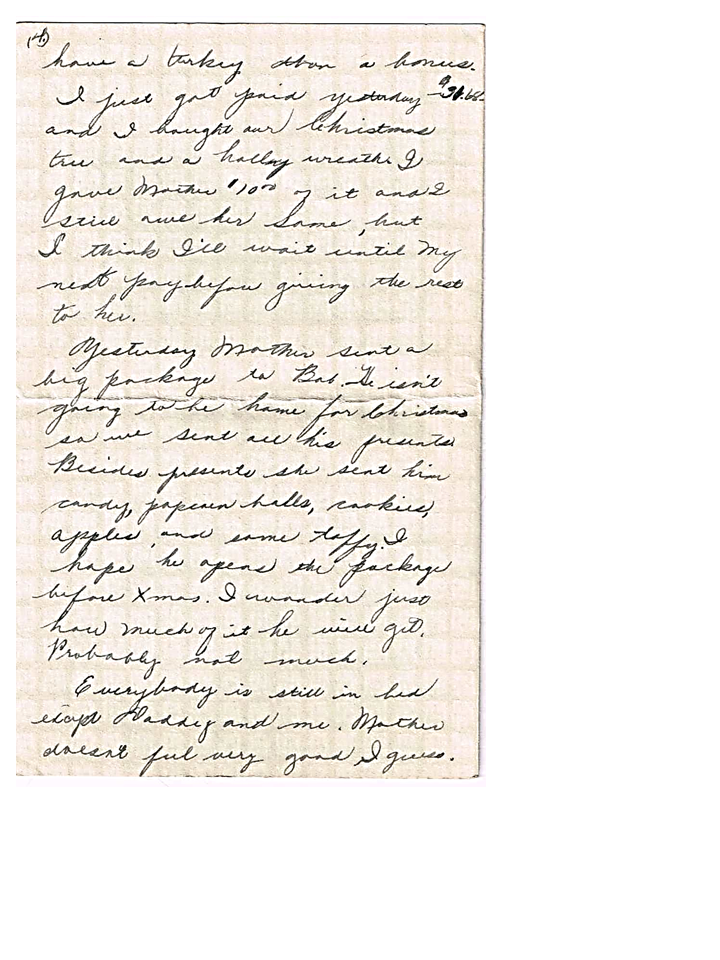 (4)
have a turkey than a bonus.
I just got paid yesterday
and I bought our Christmas
tree and a holly wreath. I
gave Mother $10.00 of it and I
still owe her some, but
I think I'll wait until my
next pay before giving the rest
to her.
Yesterday Mother sent a
big package to Bob. He isn't
going to be home for Christmas
so we sent all his presents.
Besides presents she sent him
candy, popcorn balls, cookies,
apples, and some taffy. I
hope he opens the package
before Xmas. I wonder just
how much of it he will get.
Probably not much.
Everybody is still in bed
except Daddy and me. Mother
doesn't feel very good I guess.